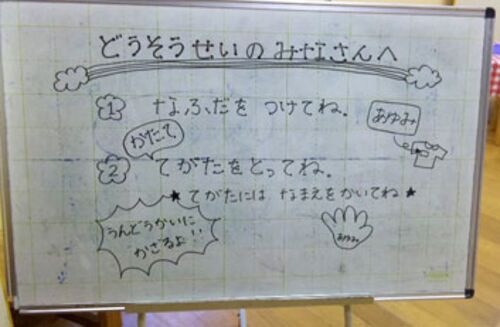 どうそうせいのみなさんへ
1 なふだを つけてね。
あゆみ
かたて
2 てがたをとってね。
★てがたには なまえをかいてね★
うんどうかいに
かざるよ!!